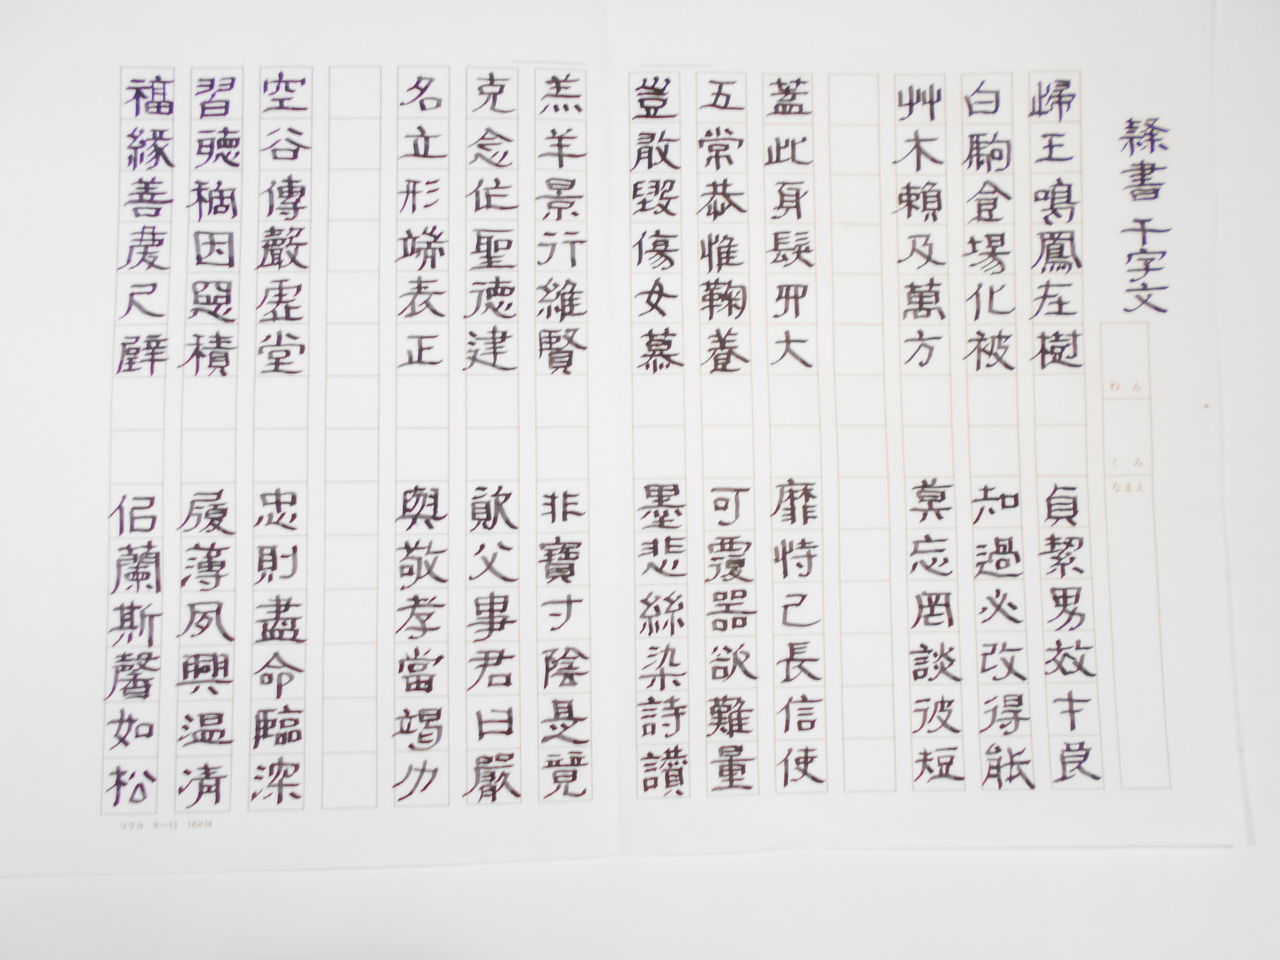 隸書 千字文
ねん
くみ
なまえ
歸王鳴鳳在樹
白駒食場化被
艸木賴及萬方
蓋此身髮四大
五常恭惟鞠養
豈敢毀傷女慕
貞絜男效才良
知過必改得能
莫忘罔談彼短
靡恃己長信使
可覆器欲難量
墨悲絲染詩讚
羔羊景行維賢
克念作聖德建
名立形端表正
空谷傳聲虛堂
習聽禍因惡積
福緣善慶尺璧
非寶寸陰是競
資父事君曰嚴
與敬孝當竭力
忠則盡命臨深
履薄夙興温凊
似蘭斯馨如松
コクヨ ケ-13 14×14